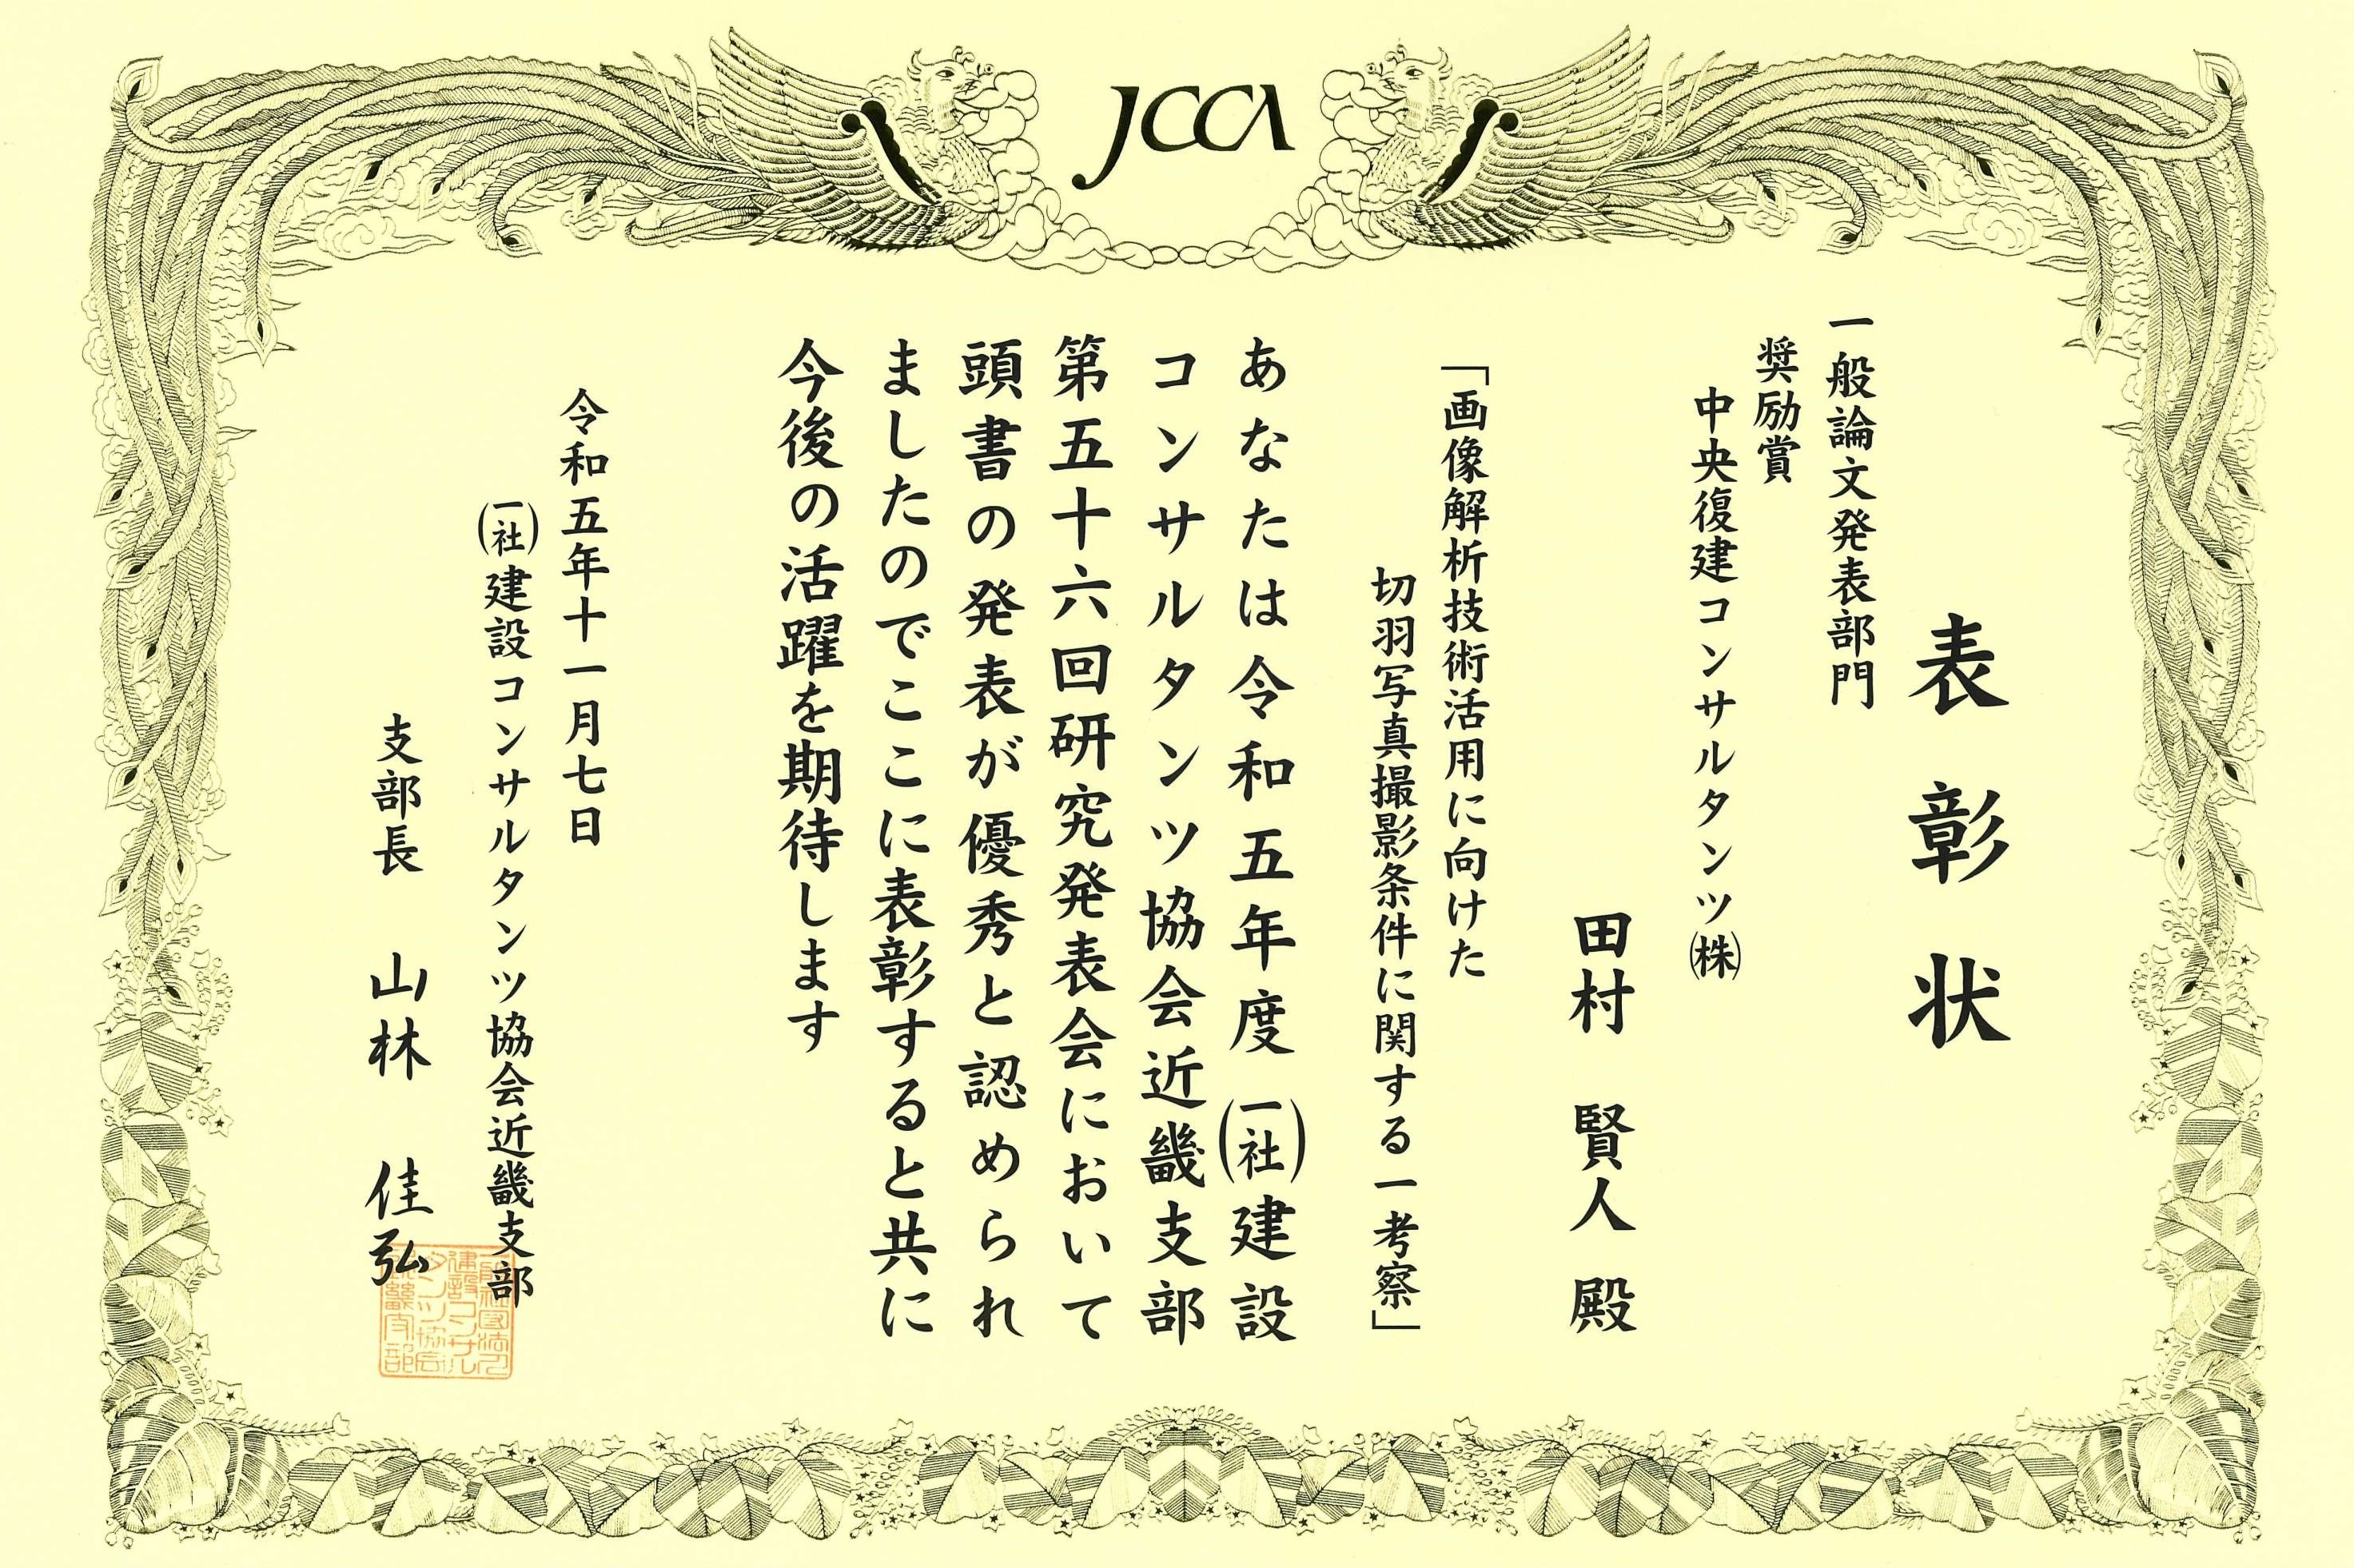 JCCA
表彰状
一般論文発表部門
奨励賞
中央復建コンサルタンツ㈱
田村 賢人 殿
「画像解析技術活用に向けた
切羽写真撮影条件に関する一考察」
あなたは令和五年度(一社)建設
コンサルタンツ協会近畿支部
第五十六回研究発表会において
頭書の発表が優秀と認められ
ましたのでここに表彰すると共に
今後の活躍を期待します
令和五年十一月七日
(一社)建設コンサルタンツ協会近畿支部
支部長 山林 佳弘